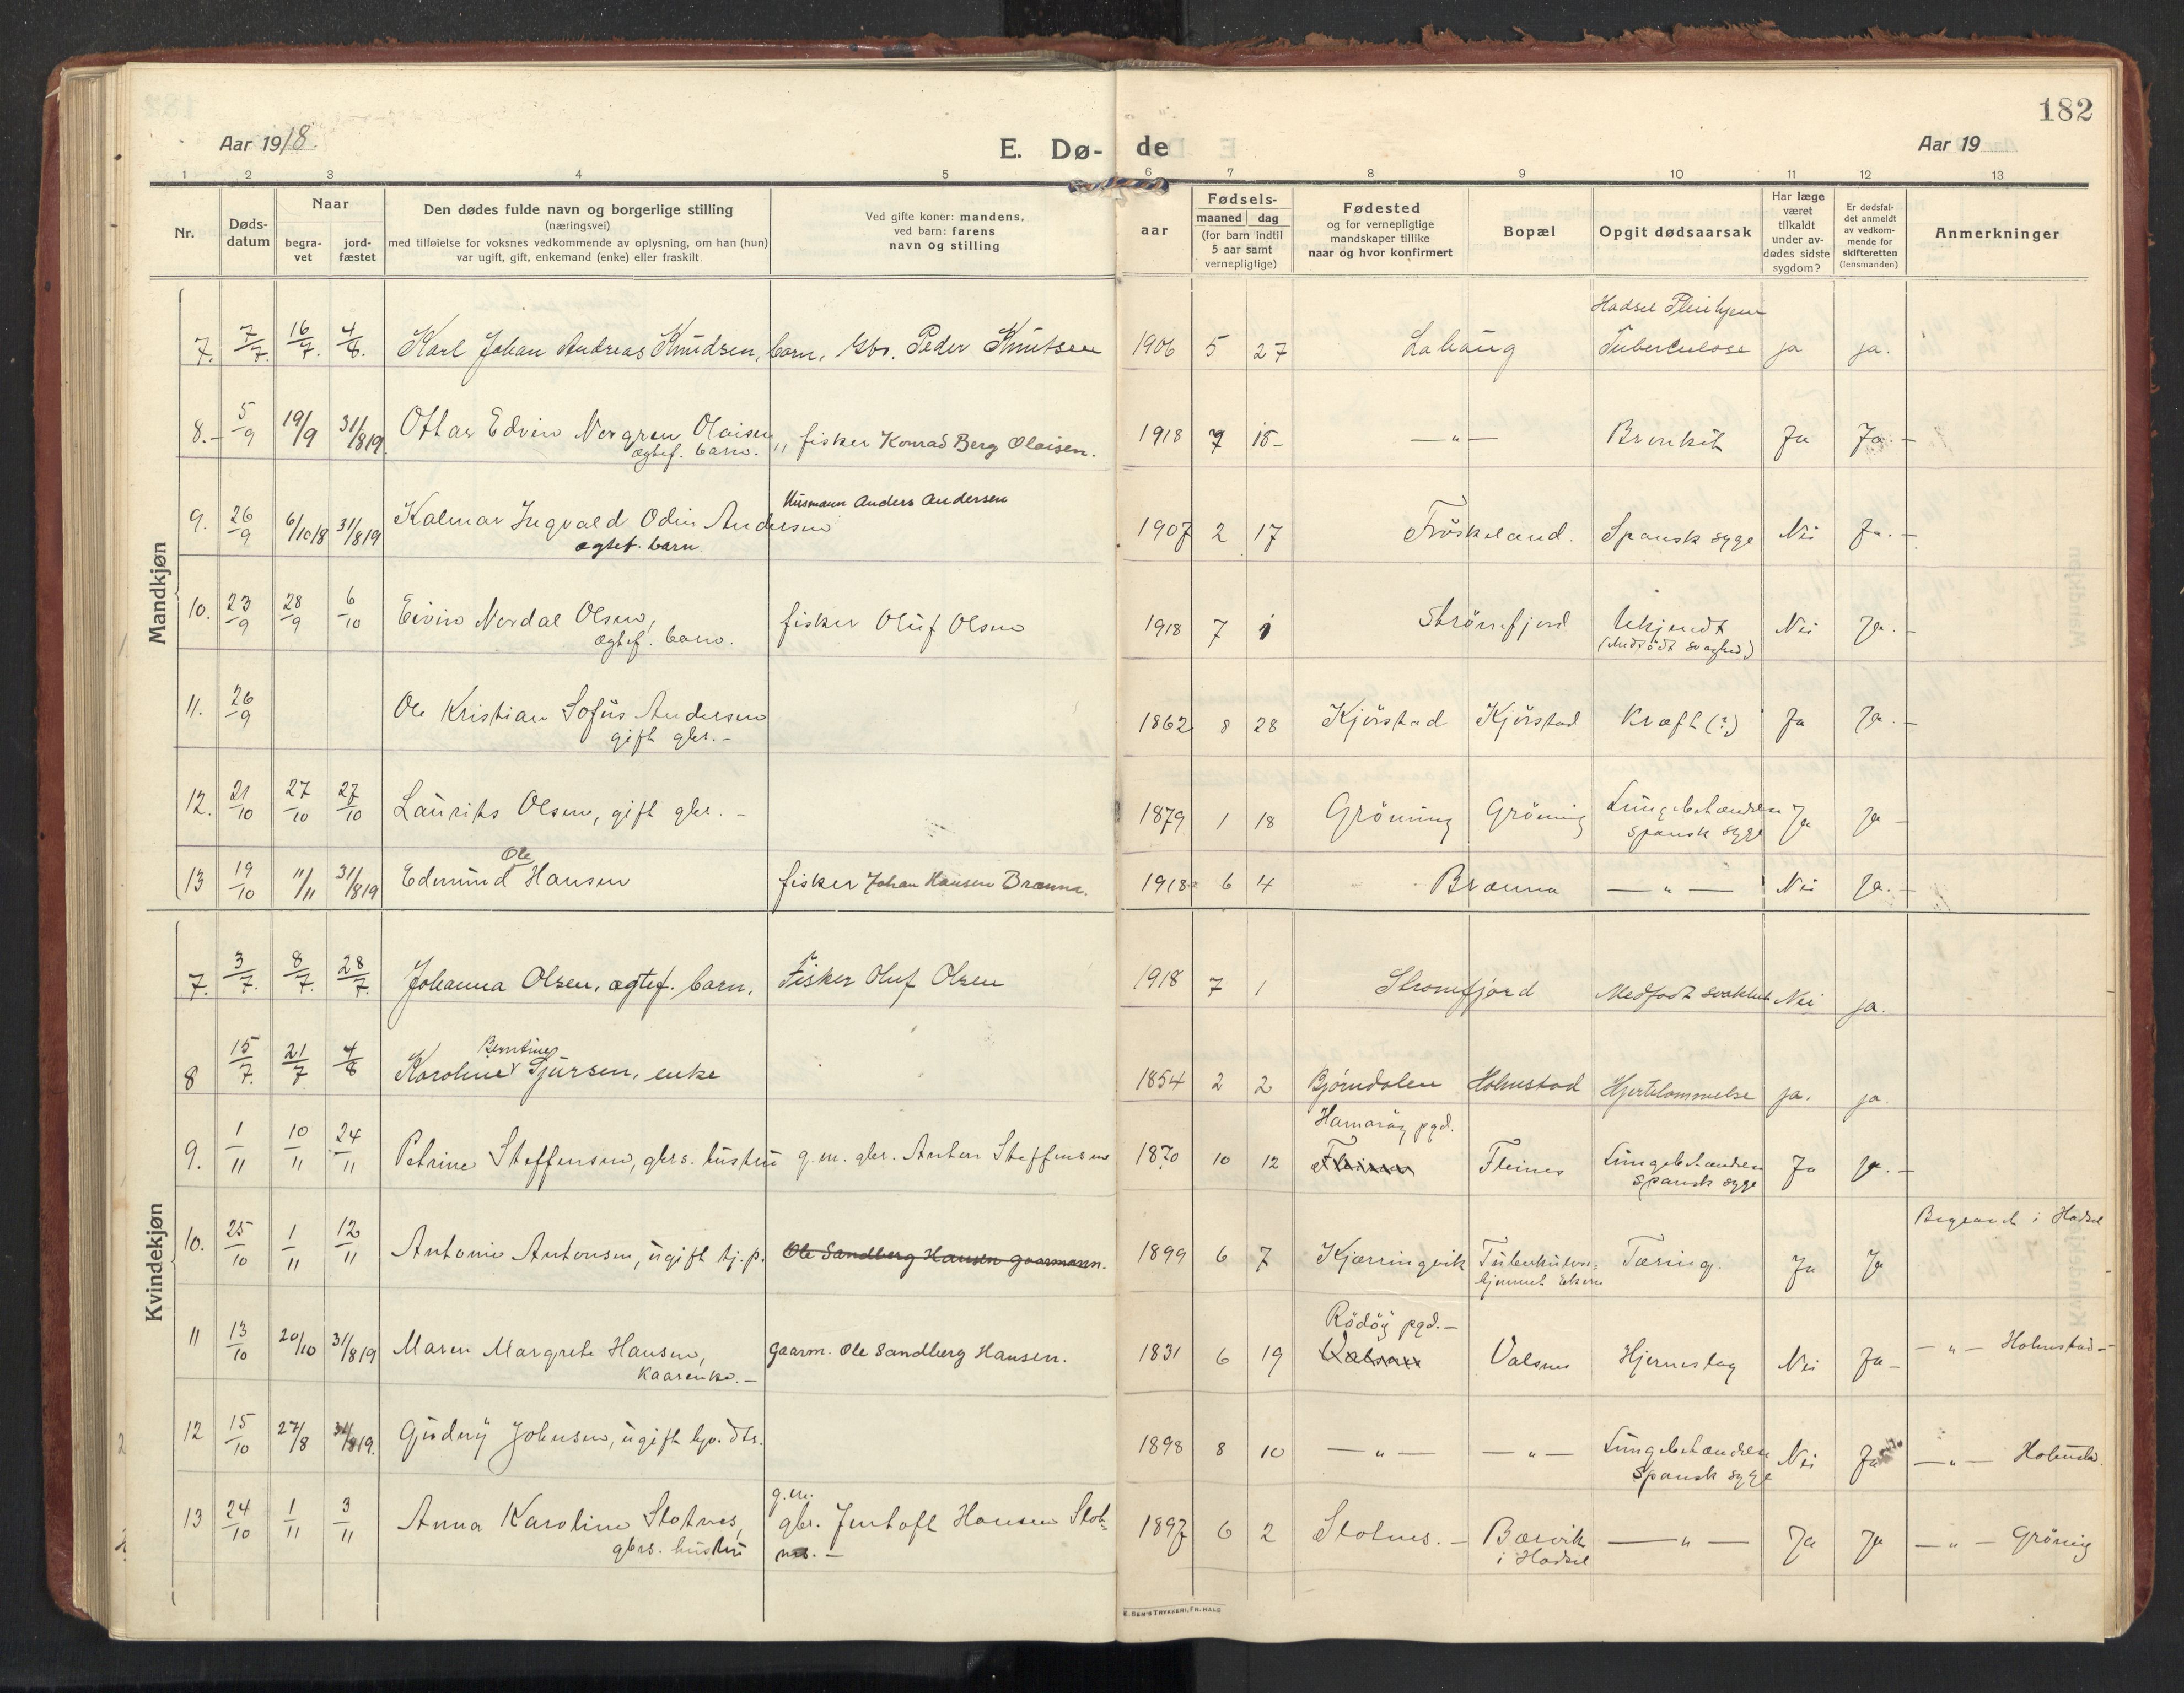 182
Aar 1918.
E. Dø- de
Aar 19
1 2 3 4 5 6 7 8 9 10 11 12 13
Nr.
Døds-
datum
Naar
begra-
vet
jord-
fæstet
Den dødes fulde navn og borgerlige stilling
(næringsvei)
med tilføielse for voksnes vedkommende av oplysning, om han (hun)
var ugift, gift, enkemand (enke) eller fraskilt
Ved gifte koner: mandens,
ved barn: farens
navn og stilling
aar
Fødsels-
maaned dag
(for barn indtil
5 aar samt
vernepligtige)
Fødested
og for vernepligtige
mandskaper tillike
naar og hvor konfirmert
Bopæl
Opgit dødsaarsak
Har læge
været
tilkaldt
under av-
dødes sidste
sygdom?
Er dødsfal-
det anmeldt
av vedkom-
mende for
skifteretten
(lensmanden)
Anmerkninger
Mandkjøn
Hadsel Pleiehjem
7. 7/7. 16/7. 4/8. Karl Johan Andreas Knudsen, barn, Gbr. Peder Knutsen 1906 5 27 Lahaug Tuberkulose ja ja.
8.- 5/9 19/9 31/819. Ottar Edvin Norgren Olaisen, fisker Konrad Berg Olaisen. 1918 7 18- —"— Bronkit Ja Ja.-
ægtef. barn.
Husmann Anders Andersen
9. 26/9 6/1018 31/819 Kalmar Ingvald Odin Andersen 1907 2 17 Fröskeland. Spansk syge Nei Ja.-
ægtef. barn
10. 23/9 28/9 6/10 Eivin Nordal Olsen, fisker Oluf Olsen 1918 7 1 Strömfjord Ukjendt Nei Ja.-
ægtef. barn. (Medfödt svaghed)
11. 26/9 Ole Kristian Sofus Andersen 1862 8 28 Kjörstad Kjörstad Kræft (?) Ja Ja.-
gift gbr.-
12. 21/10 27/10 27/10 Laurits Olsen, gift gbr.- 1879 1 18 Gröning Gröning Lungebetændelse Ja Ja-
spansk syge
Ole
13 19/10 11/11 31/819 Edmund Hansen fisker Johan Hansen Brænna. 1918 6 4 Brænna —"— Nei Ja.-
Kvindekjøn
7. 3/7. 8/7. 28/7. Johanna Olsen, ægtef. barn, Fisker Oluf Olsen 1918 7 1 Strømfjord Medfødt svakhet Nei ja.
Berntine
8 15/7. 21/7 4/8 Karoline Sjursen, enke 1854 2 2 Bjørndalen Holmstad Hjertelammelse ja. ja.
Hamarøy pgd.
9. 1/11 10/11 24/11 Petrine Steffensen, gbrs. hustru g.m. gbr. Anton Steffensen 1870 10 12 Fleines Fleines Lungebetændelse Ja Ja.-
spansk syge
Begravet i Hadsel
10. 25/10 1/11 12/11 Antonie Antonsen, ugift tj.p. Ole Sandberg Hansen gaarmann. 1899 6 7 Kjærringvik Tuberkulose= Tæring. Ja Ja
hjemmet
Rödöy pgd.-
11 13/10 20/10 31/819 Maren Margrete Hansen, gaarm. Ole Sandberg Hansen. 1831 6 19 Valsnes Valsnes Hjerneslag Nei Ja- —"— Holmstad-
Kaarenke.-
12 15/10 27/8 31/819. Gudny Johnsen, ugift 1898 8 10 —"— —"— Lungebetændelse Nei Ja —"— Holmstad.
Spansk syge
g.m.
13 24/10 1/11 3/11 Anna Karoline Slotnes, gbr. Jentoft Hansen Slot= 1897 6 2 Slotnes.- Bærvik —"— Ja Ja —"— Gröning
gbrs. hustru nes.- i Hadsel
E. SEM'S TRYKKERI, FR.HALD